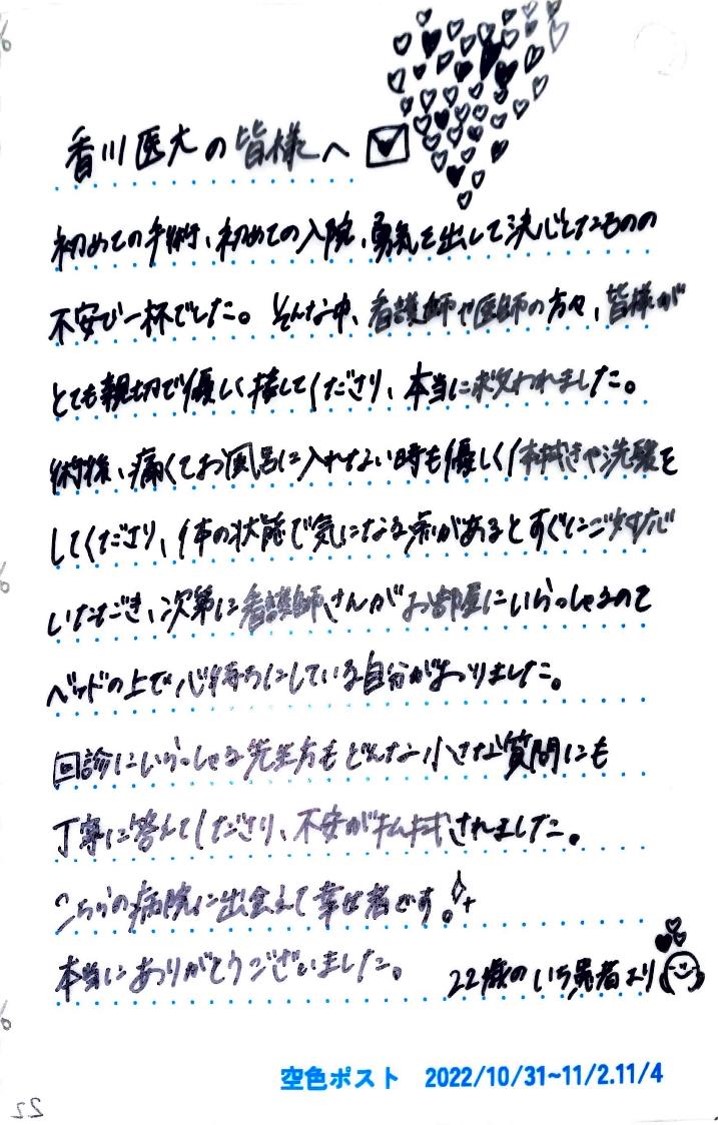 香川医大の皆様へ
初めての手術、初めての入院、勇気を出して決心したものの
不安で一杯でした。そんな中、看護師や医師の方々、皆様が
とても親切で優しく接してくださり、本当に救われました。
術後、痛くてお風呂に入れない時も優しく体拭きや洗髪を
してくださり、体の状態で気になる点があるとすぐにご対応
いただき、次第に看護師さんがお部屋にいらっしゃるのて
ベッドの上で心待ちにしている自分がおりました。
回診にいらっしゃる先生方もどんな小さな質問にも
丁寧に答えてくださり、不安が払拭されました。
こちらの病院に出会えて幸せ者です。
本当にありがとうございました。 22歳のいち患者より
空色ポスト 2022/10/31~11/2.11/4
22